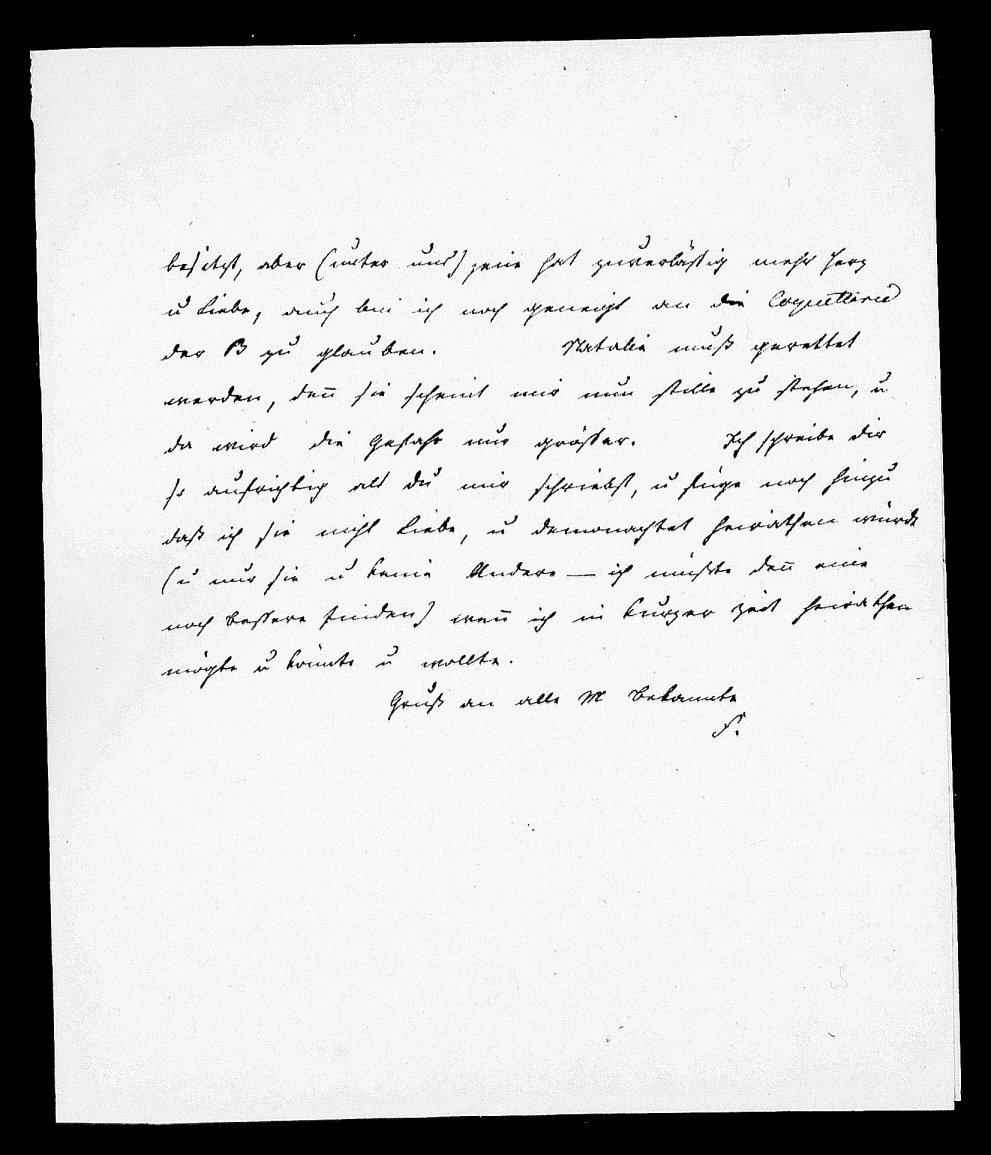 besitzt, aber (unter uns) jene hat zuverlässig mehr Herz
u Liebe, auch bin ich noch geneigt an die Coquetterie
der B zu glauben. Natalie muß gerettet
werden, den̄ sie scheint mir nun stille zu stehen, u
da wird die Gefahr nur grösser. Ich schreibe dir
so aufrichtig als du mir schriebst, u füge noch hinzu
daß ich sie nicht liebe, u demonachtet heirathen würde
(u nur sie u keine Andere — ich müsste den̄ eine
noch bessere finden) wen̄ ich in kurzer Zeit heirathen
mögte u könnte u wollte.
Gruß an alle M Bekannte
F.